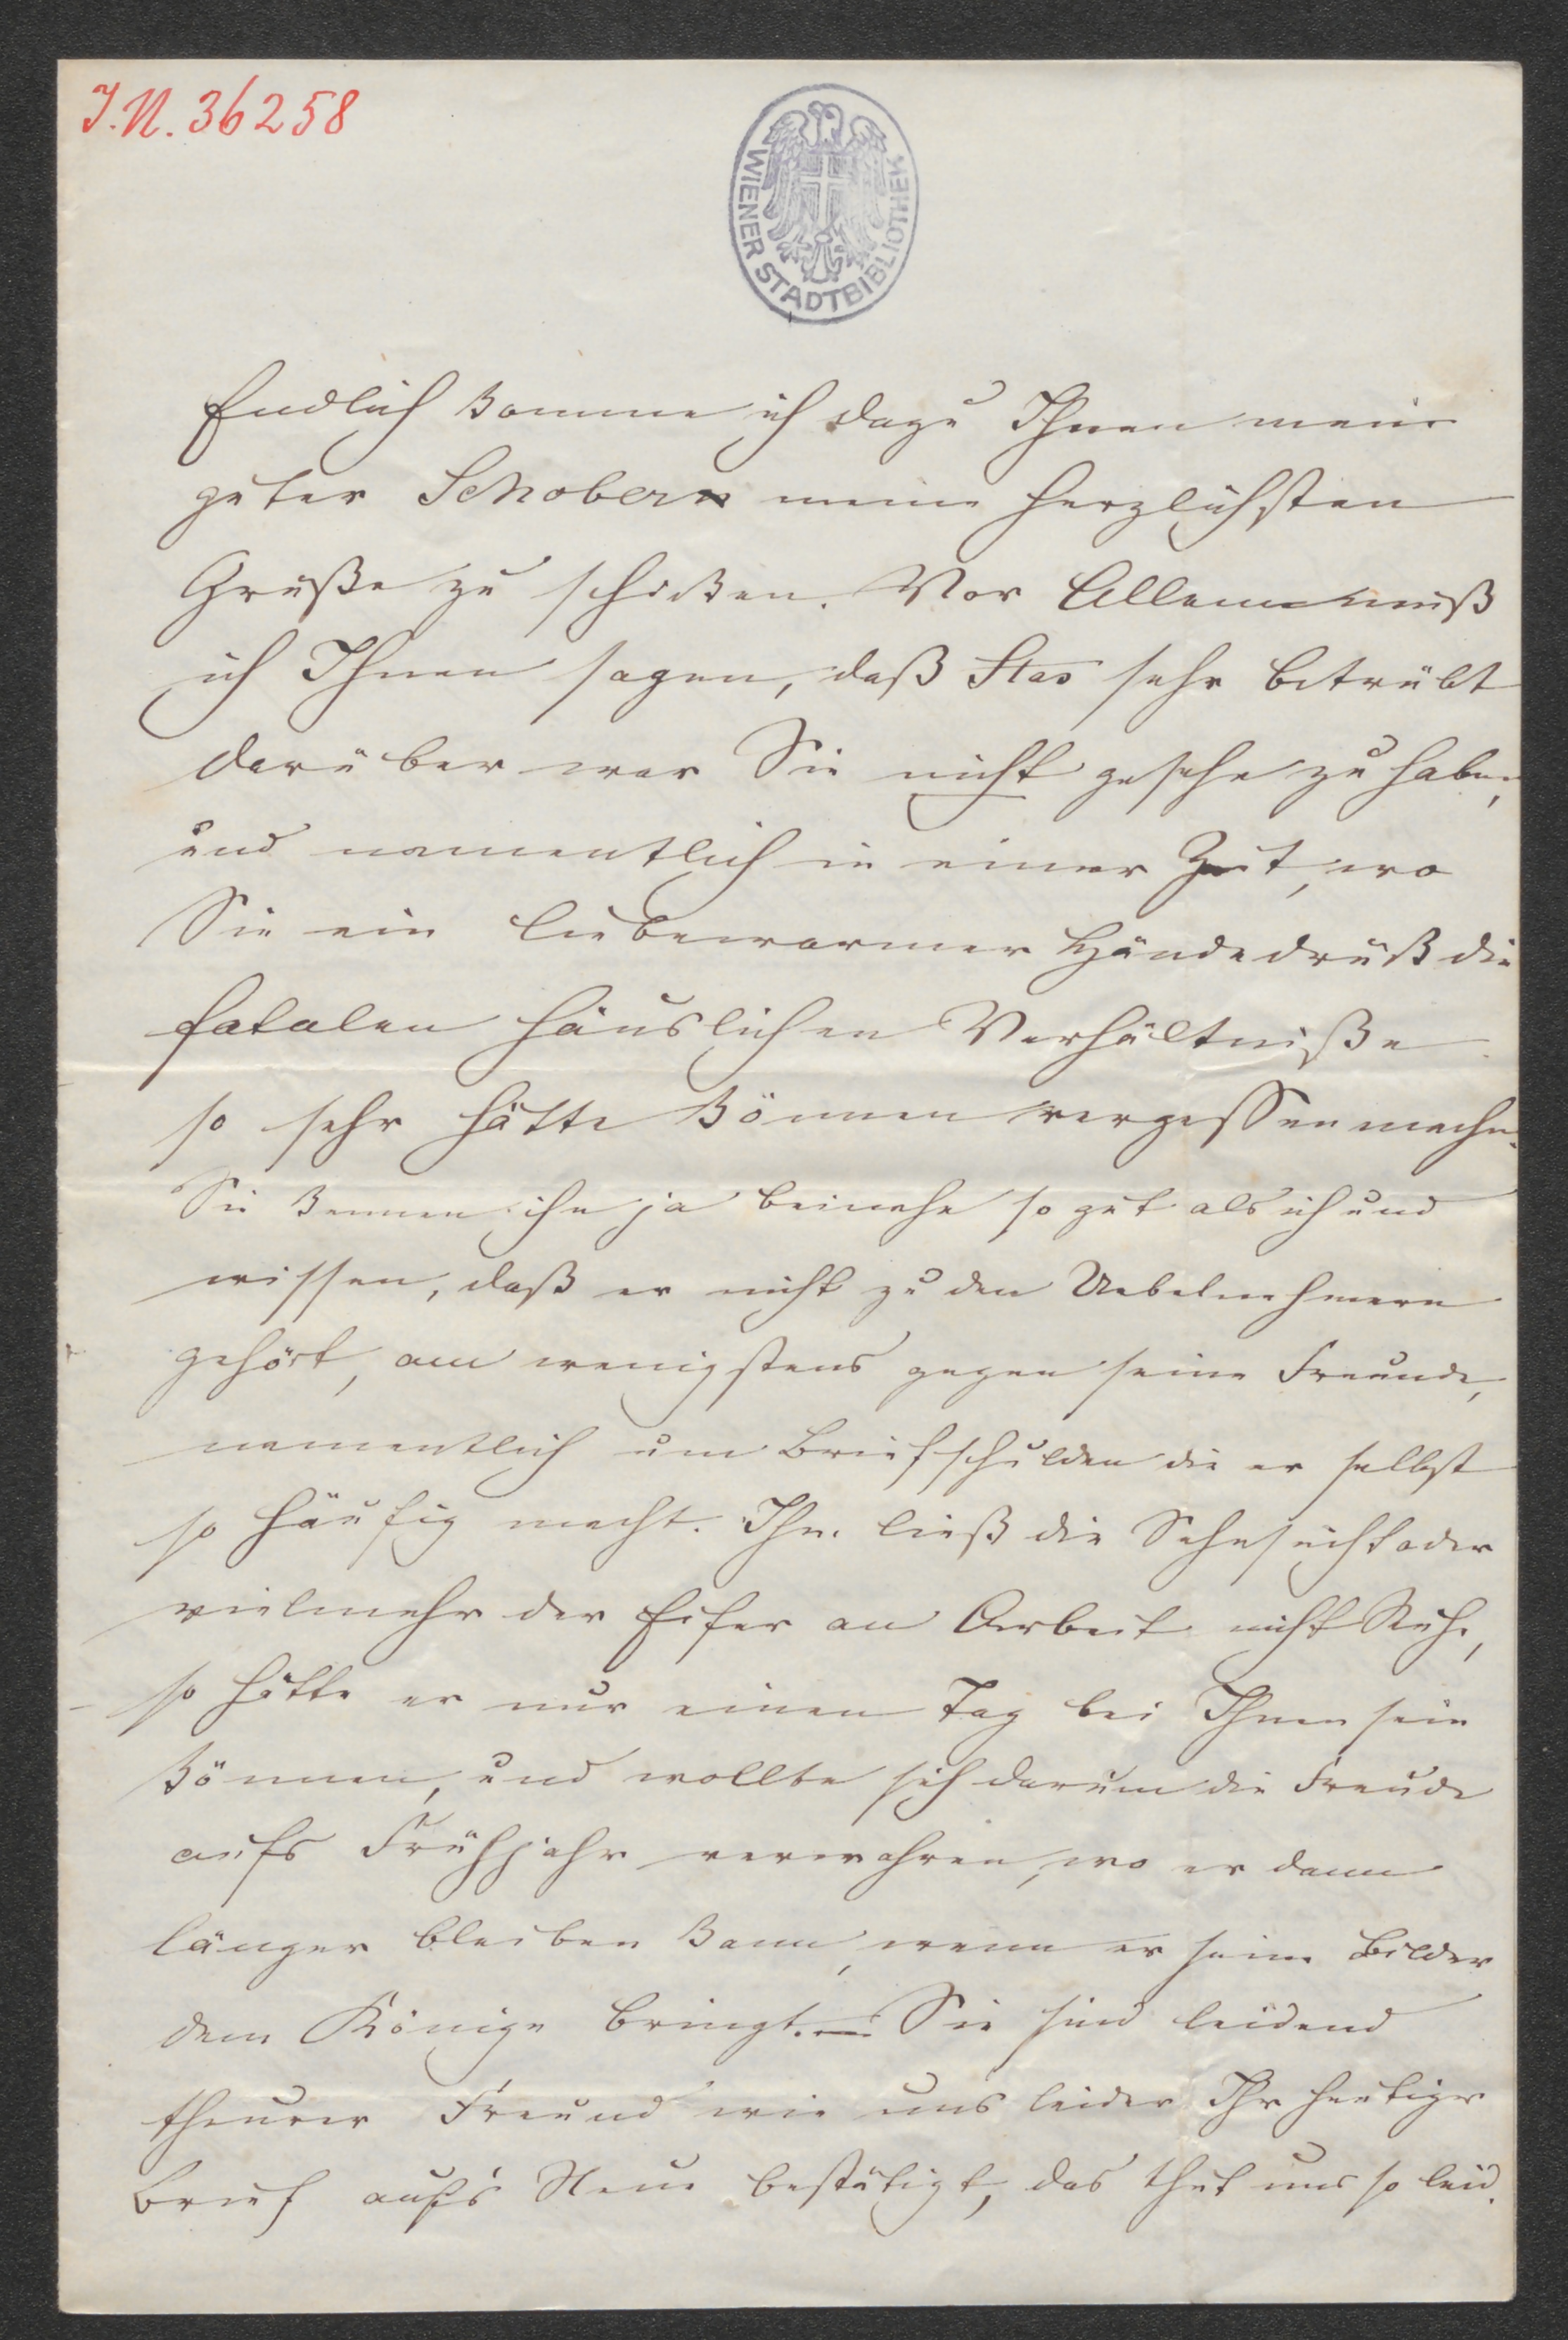 I.N. 36258
WIENER STADTBIBLIOTHEK
Endlich komme ich dazu Ihnen mein
guter Schober meine herzlichsten
Grüße zu schicken. Vor Allem muß
ich Ihnen sagen, daß Stas sehr betrübt
darüber war Sie nicht gesehe zu haben,
und namentlich in einer Zeit, wo
Sie ein liebewarmer Händedruck die
fatalen häuslichen Verhältniße
so sehr hätte können vergessen machen.
Sie kennen ihn ja beinahe so gut als ich und
wissen, daß er nicht zu den Uebelnehmern
gehört, am wenigstens gegen seine Freunde,
namentlich um Briefschulden die er selbst
so häufig macht. Ihn ließ die Sehnsucht oder
vielmehr der Eifer an Arbeit nicht Ruhe,
so hätte er nur einen Tag bei Ihnen sein
können, und wollte sich darum die Freude
aufs Frühjahr verwahren, wo er dann
länger bleiben kann, wenn er seine Bilder
dem Könige bringt. — Sie sind leidend
theurer Freund wie uns leider Ihr heutiger
Brief auf's Neue bestätigt, das thut uns so leid.